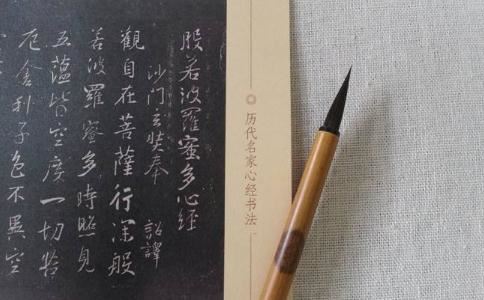 历代名家心经书法
般若波羅蜜多心經
沙門玄奘奉 詔譯
觀自在菩薩行深般
若波羅蜜多時照見
五蘊皆空度一切苦
厄舍利子色不異空